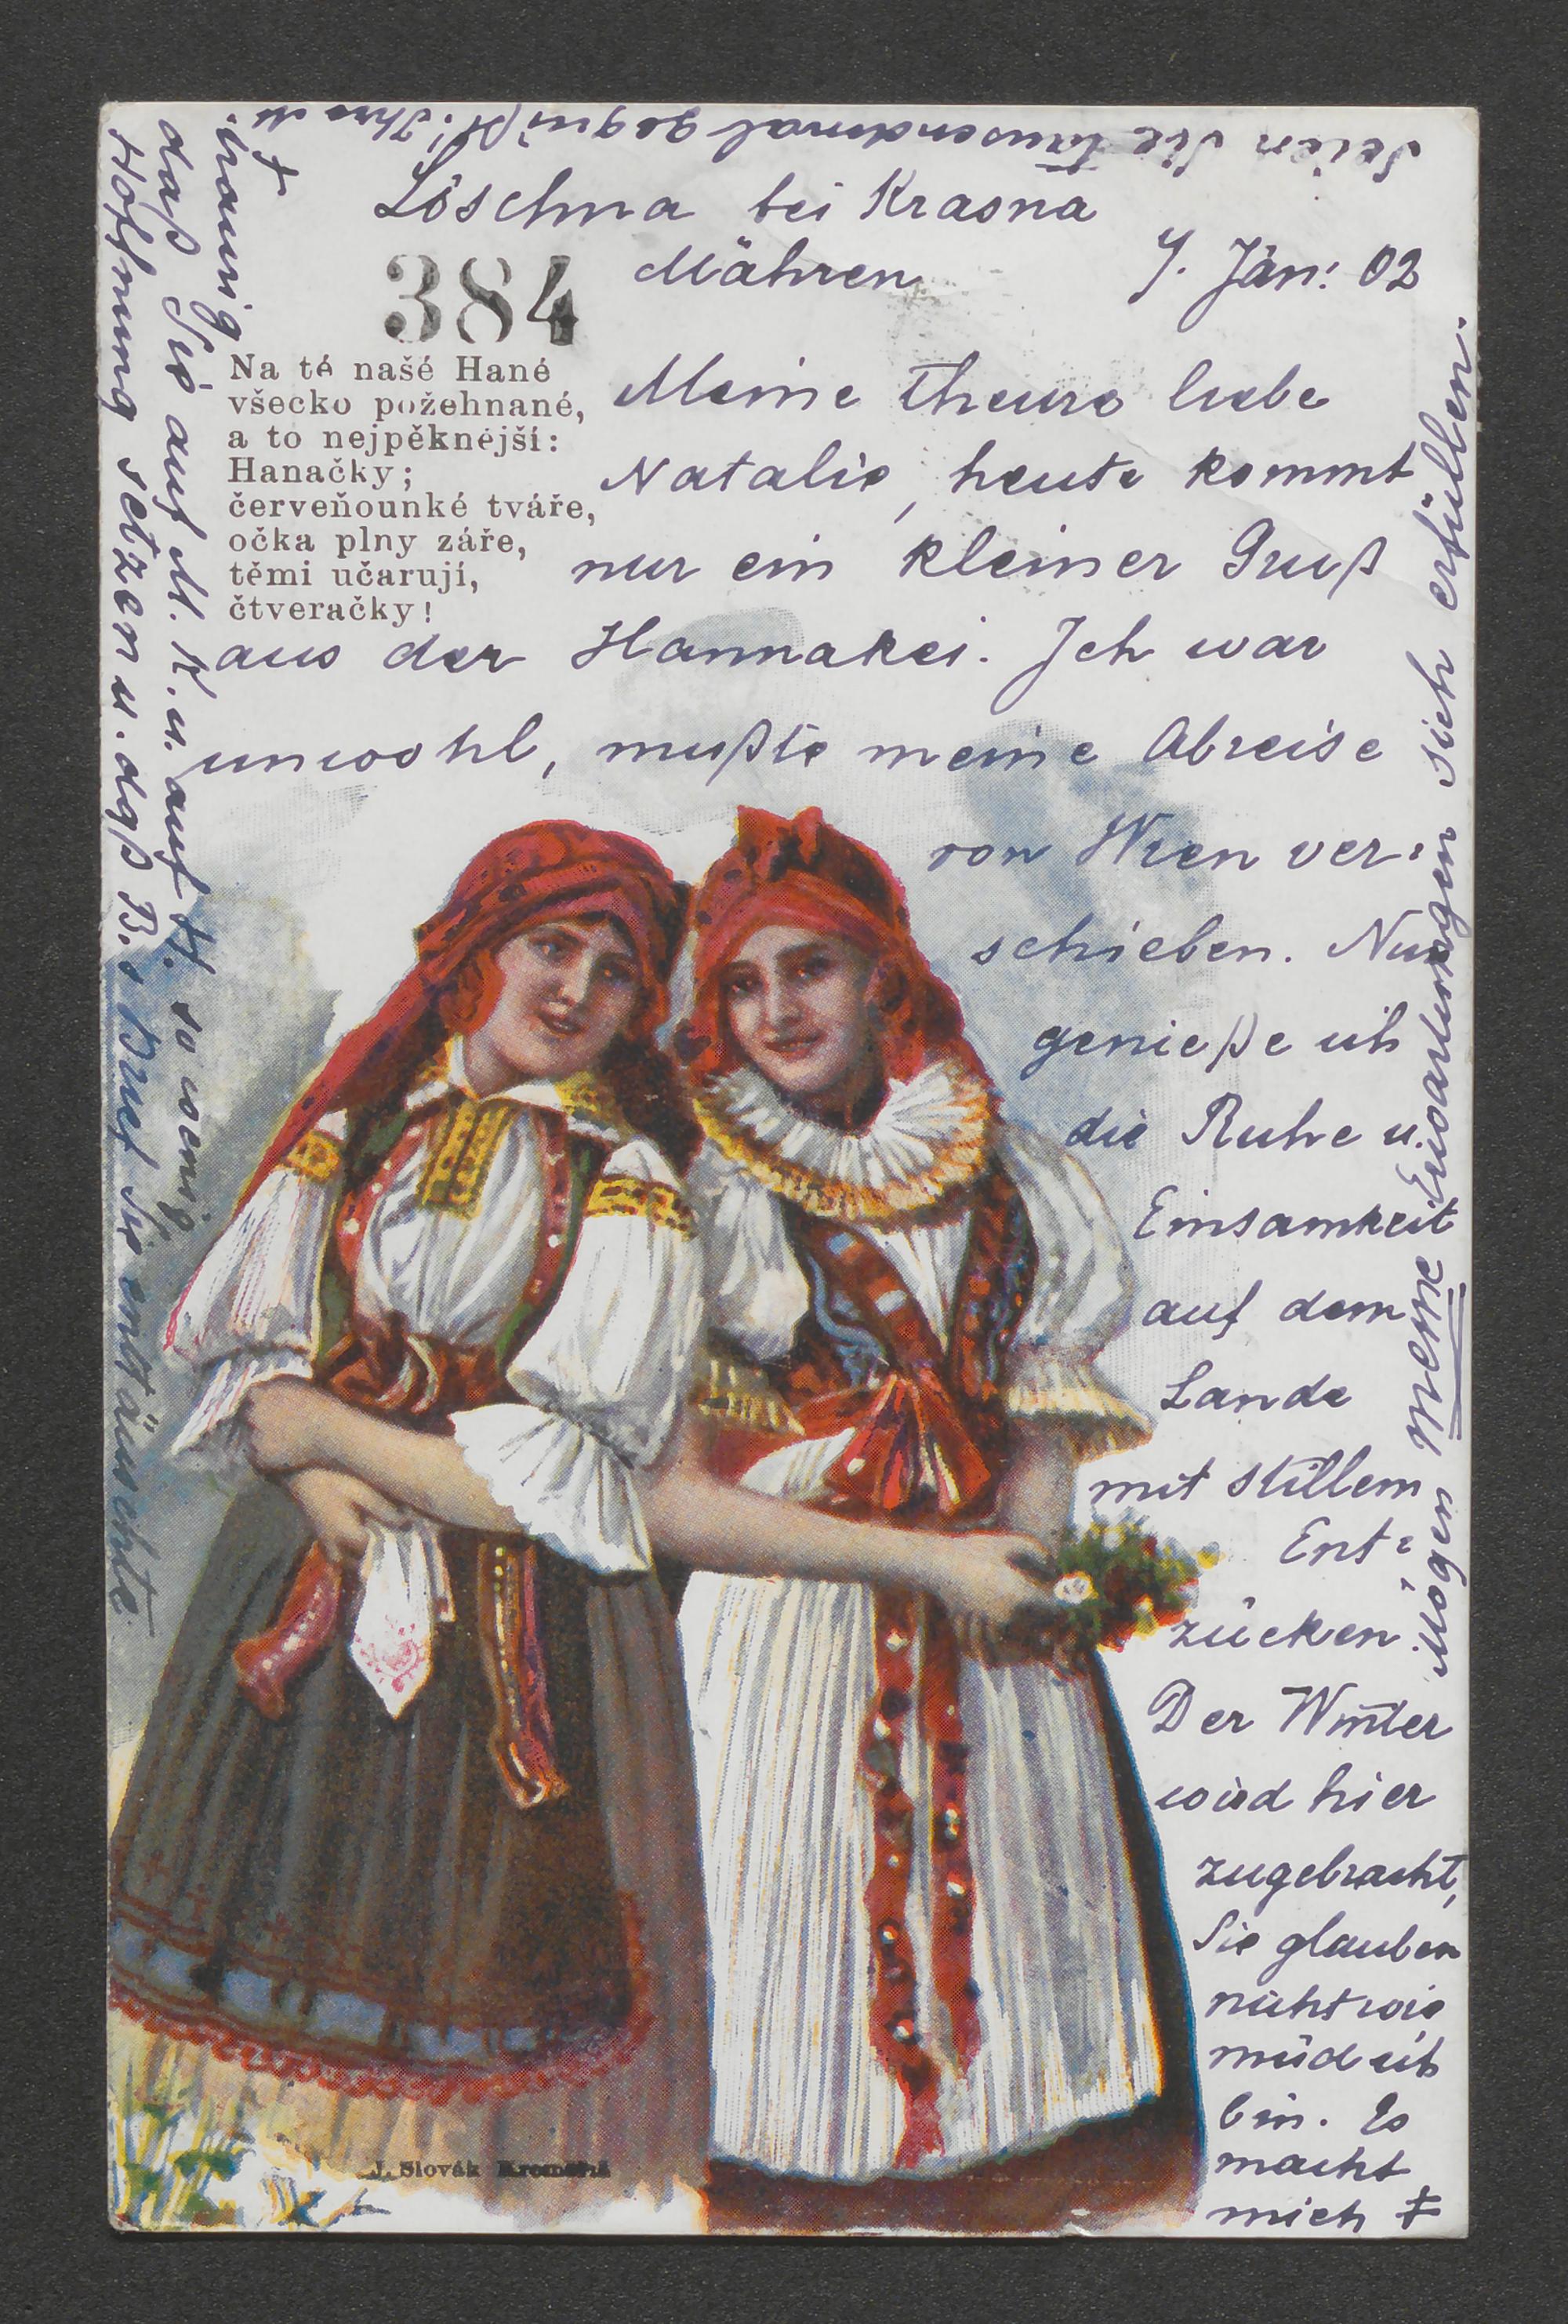 Löschna bei Krasna
Mähren 7. Jän: 02
384
Na té našé Hané
všecko požehnané,
a to nejpěknější:
Hanačky;
červeňounké tváře,
očka plny záře,
těmi učarují,
čtveračky!
Meine theure liebe
Natalie, heute kommt
nur ein kleiner Gruß
aus der Hannakei. Ich war
unwohl, mußte meine Abreise
von Wien ver=
schieben. Nun
genieße ich
die Ruhe u.
Einsamkeit
auf dem
Lande
mit stillem
Ent=
zücken.
Der Winter
wird hier
zugebracht,
Sie glauben
nicht wie
müd ich
bin. Es
macht
mich ‡
‡
traurig,
daß Sie auf M. K. u. auf H. so wenig
Hoffnung setzen u. daß B.s Brief Sie enttäuschte.
Mögen meine Erwartungen sich erfüllen.
Seien Sie tausendmal gegrüßt! Ihre M.
J. Slovák Kroměříž